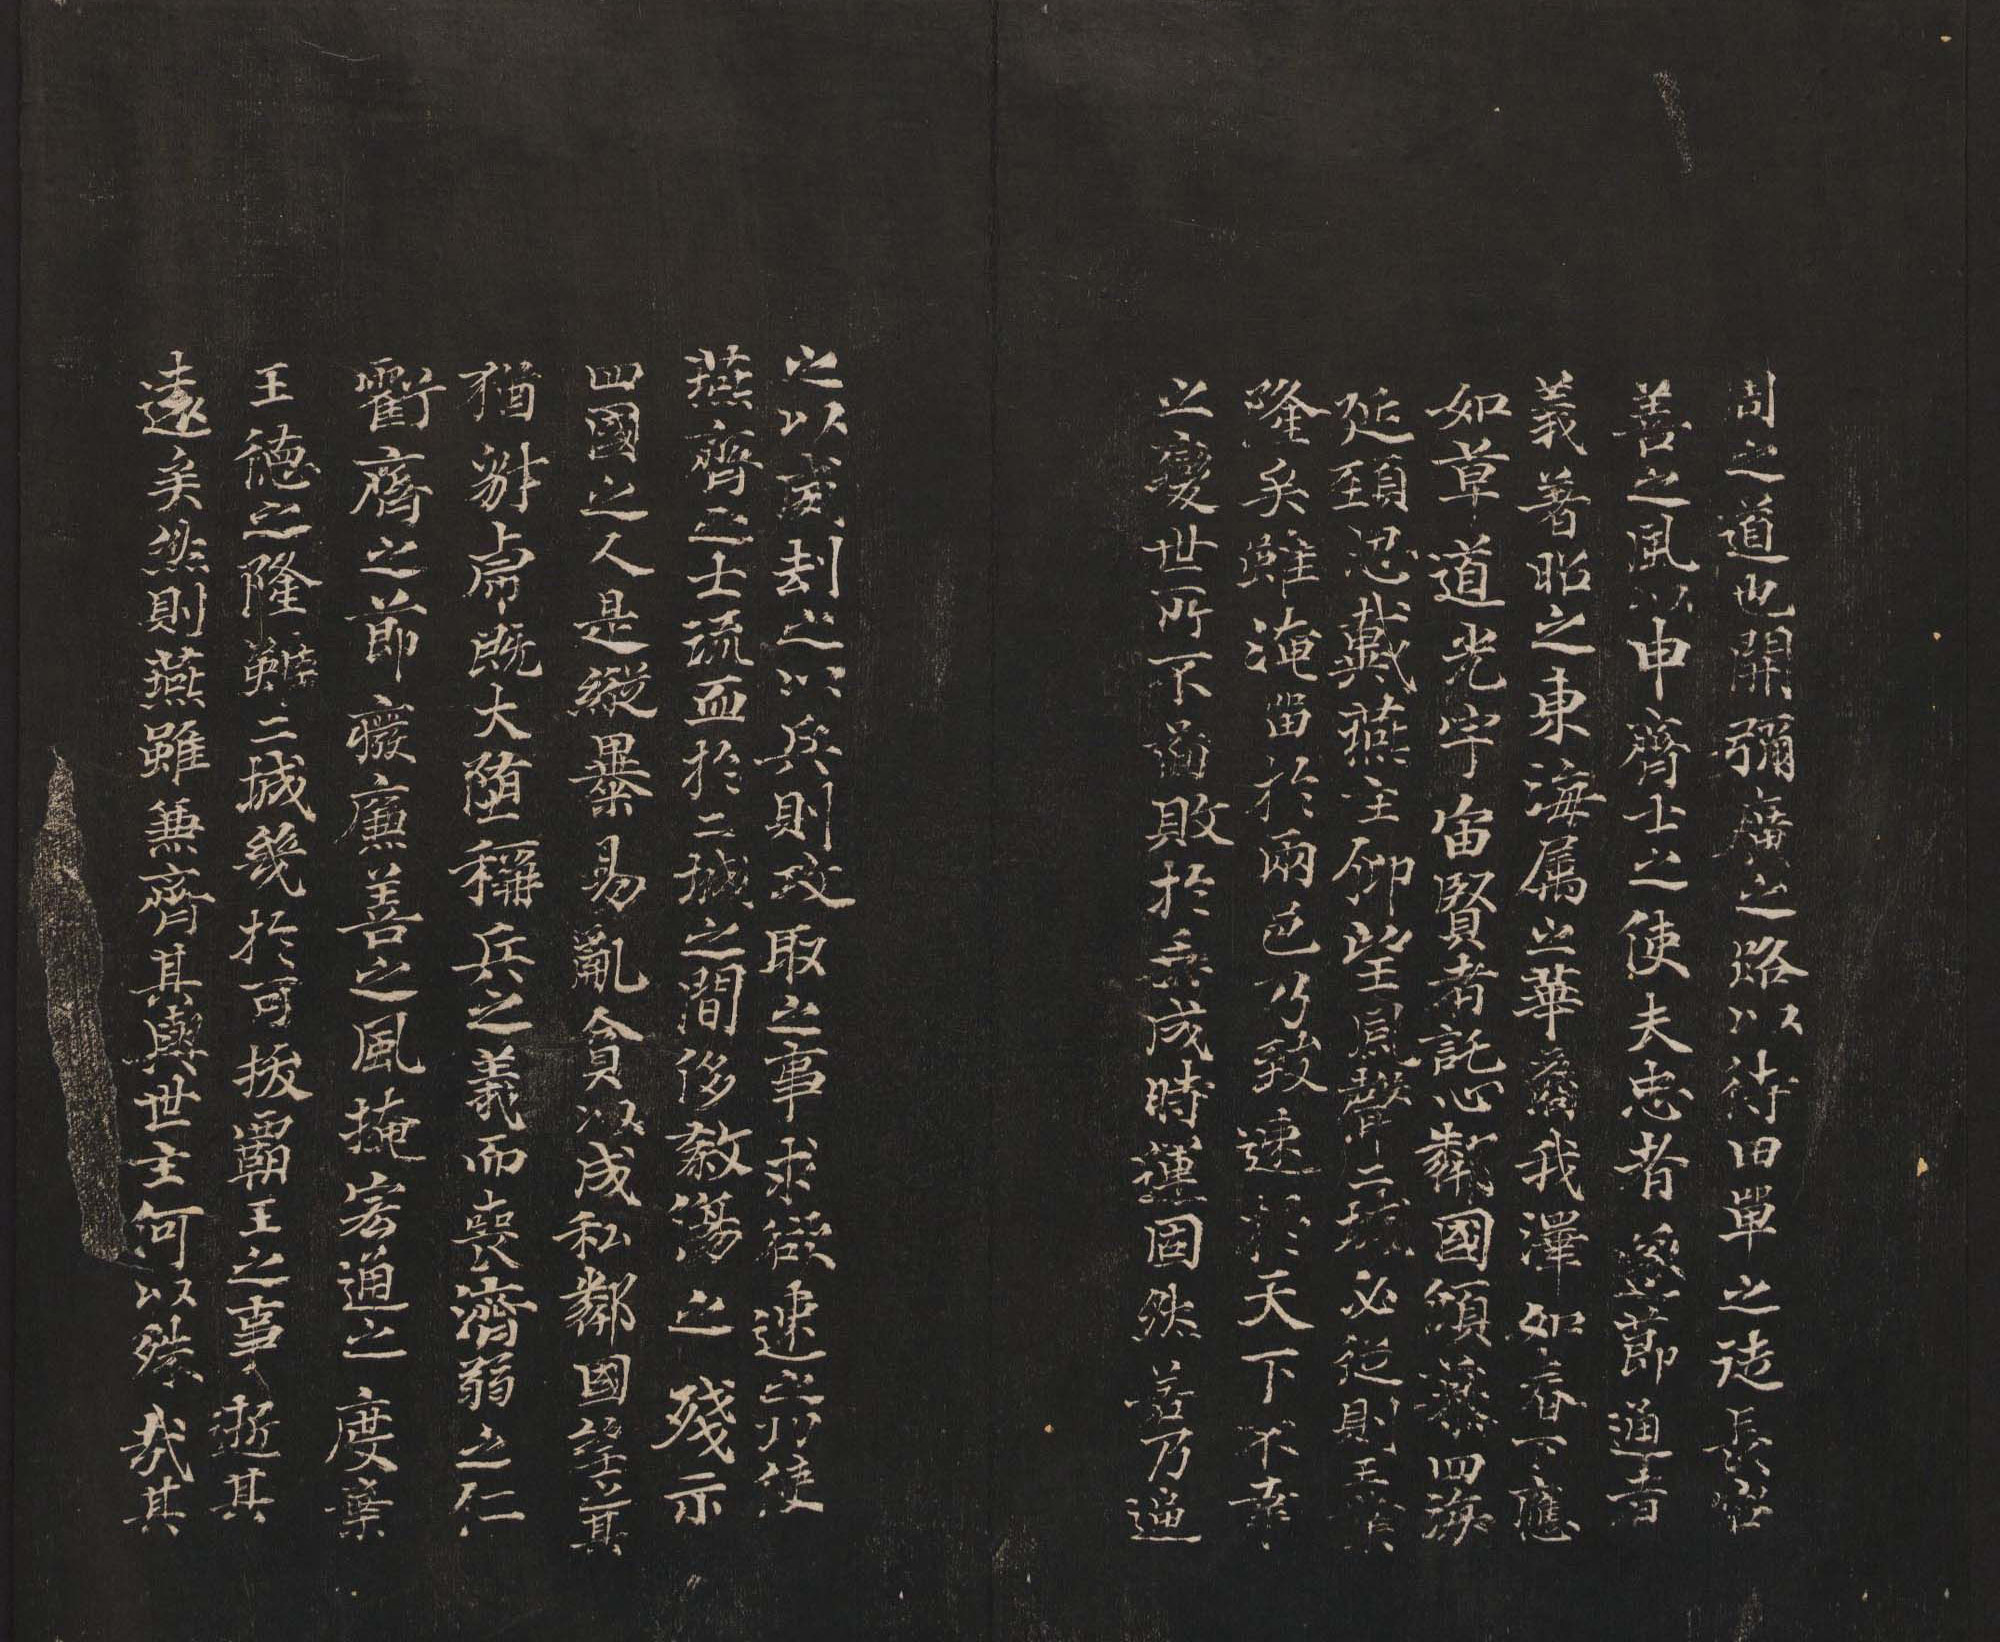 周之道也開彌廣之路以待田單之徒長容
善之風以申齊士之使夫忠者遂節通者
義著昭之東海属之華裔我澤如春下應
如草道光宇宙賢者託心鄰國傾慕四海
延頸思戴燕主仰望風聲二城必從則王業
隆矣雖淹留於兩邑乃致速於天下不幸
之變世所不啚敗於垂成時運固然若乃逼
之以威劫之以兵則攻取之事求欲速之功使
燕齊之士流血於二城之間侈敎傷之殘示
四國之人是縱暴易亂貪以成私鄰國望其
猶豺虎既大堕稱兵之義而喪濟弱之仁
虧齊之節癈廉善之風掩宏通之度棄
王德之隆雖二城幾於可拔覇王之事逝其
遠矣然則燕雖兼齊其與世主何以殊哉其